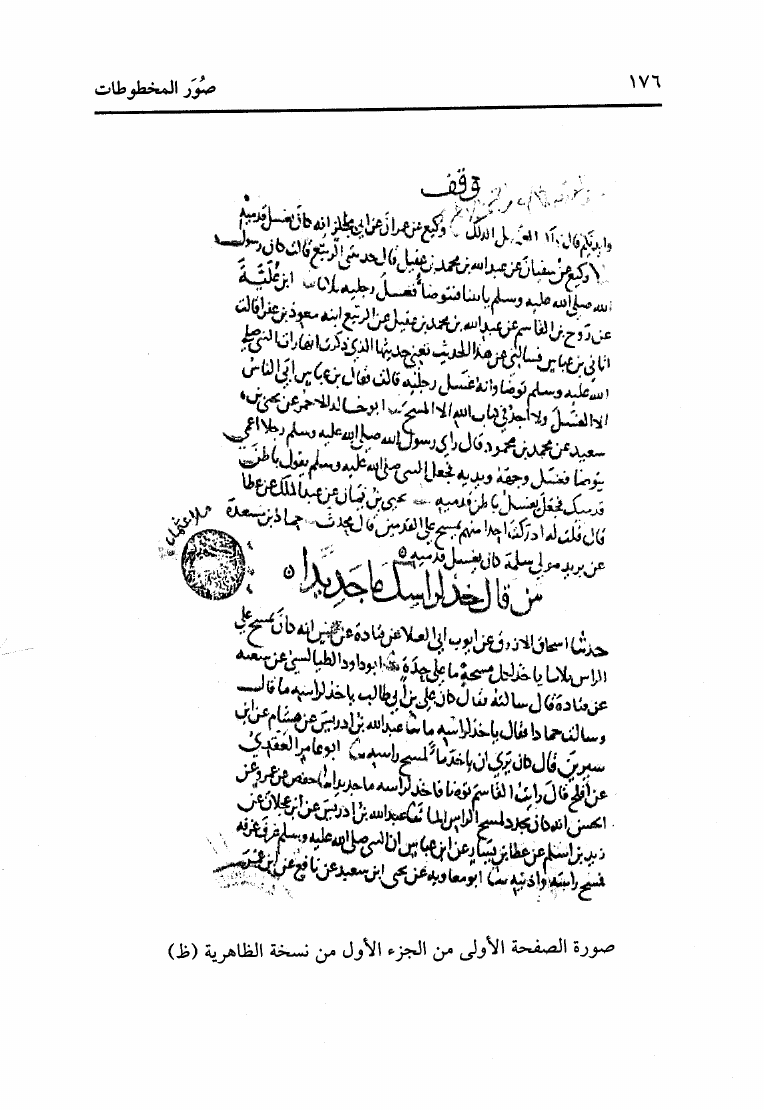 ١٧٦
صُوَر المخطوطات
وقف
وكيع عن عمران عن ابي مجلز انه كان يغسل قدميه
وكيع عن سفيان عن عبد الله بن محمد بن عقيل قال حدثتني الربيع قالت كان رسول
الله صلى الله عليه وسلم ياتينا فتوضا فغسل رجليه ثلاثا ابن علية
عن روح بن القاسم عن عبد الله بن محمد بن عقيل عن الربيع ابنه معوذ بن عفرا قالت
اتاني ابن عباس فسالني عن هذا الحديث تعني حديثها الذي ذكرت انها رات النبي صلى
الله عليه وسلم توضا وانه غسل رجليه قالت فقال ابن عباس ابى الناس
الا الغسل ولا اجد في كتاب الله الا المسح ابو خالد الاحمر عن يحيى بن
سعيد عن محمد بن محمود قال راى رسول الله صلى الله عليه وسلم رجلا اعمى
يتوضا فغسل وجهه ويديه فجعل النبي صلى الله عليه وسلم يقول باطن
قدميك فجعل يغسل باطن قدميه يحيى بن يمان عن عبد الملك عن عطا
قال قلت له ادركت احدا منهم يمسح على القدمين قال محدث حماد بن مسعدة
عن يزيد مولى سلمة كان يغسل قدميه
من قال خذ لراسك ما جديدا
حدثنا اسحاق الازرق عن ايوب ابي العلا عن قتادة عن انس انه كان يمسح على
الراس ثلاثا ياخذ لكل مسحة ما على حدة ابو داود الطيالسي عن شعبه
عن قتادة قال سالته فقال كان علي بن ابي طالب ياخذ لراسه ما قال
وسالت حمادا فقال ياخذ لراسه ما عبد الله بن ادريس عن هشام عن ابن
سيرين قال كان يرى ان ياخذ ما لمسح راسه ابو عامر العقدي
عن افلح قال رايت القاسم توضا فاخذ لراسه ما جديدا حفص عن عمرو عن
الحسن انه كان يجدد لمسح الراس الما عبد الله بن ادريس عن ابن عجلان عن
زيد بن اسلم عن عطا بن يسار عن ابن عباس ان النبي صلى الله عليه وسلم غرف غرفه
فمسح راسه واذنيه ابو معاويه عن يحيى ابن سعيد عن نافع عن ابن عمر
صورة الصفحة الأولى من الجزء الأول من نسخة الظاهرية (ظ)